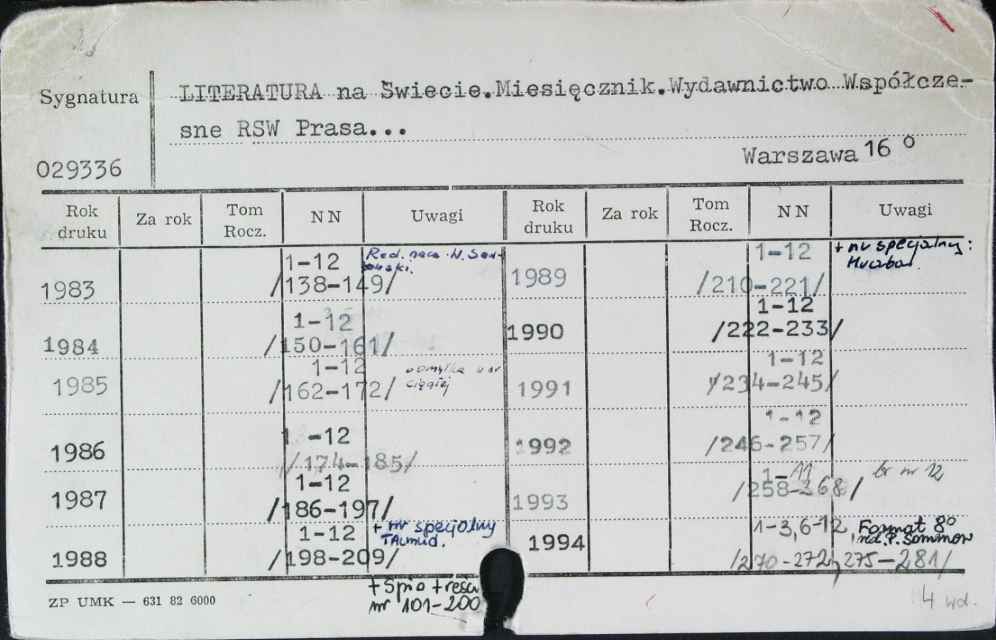 Sygnatura
LITERATURA na Świecie.Miesięcznik.Wydawnictwo Współcze-
sne RSW Prasa...
029336
Warszawa 16 °
Rok druku Za rok Tom Rocz. NN Uwagi Rok druku Za rok Tom Rocz. NN Uwagi
1983 1-12 /138-149/ Red. nacz. W. Sadkowski.
1984 1-12 /150-161/
1985 1-12 /162-172/ omyłka w nr ciągłej
1986 1-12 /174-185/
1987 1-12 /186-197/
1988 1-12 /198-209/ + nr specjalny TALMUD.
+ Spis treści
nr 101-200
1989 1-12 /210-221/ + nr specjalny:
1990 1-12 /222-233/
1991 1-12 /234-245/
1992 1-12 /246-257/
1993 1-11 /258-268/ br nr 12
1994 1-3,6-12, /270-272, 275-281/ Format 8° P. Sommer
ZP UMK — 631 82 6000
4 wd.